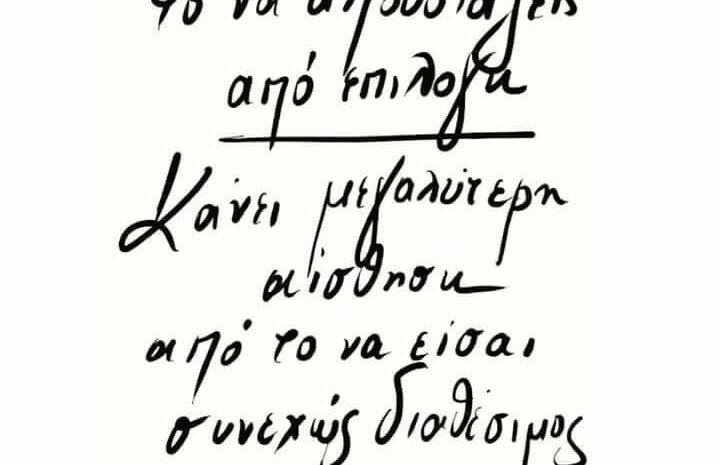 το να απουσιάζεις
από επιλογή
Κάνει μεγαλύτερη
αίσθηση
από το να είσαι
συνεχώς διαθέσιμος